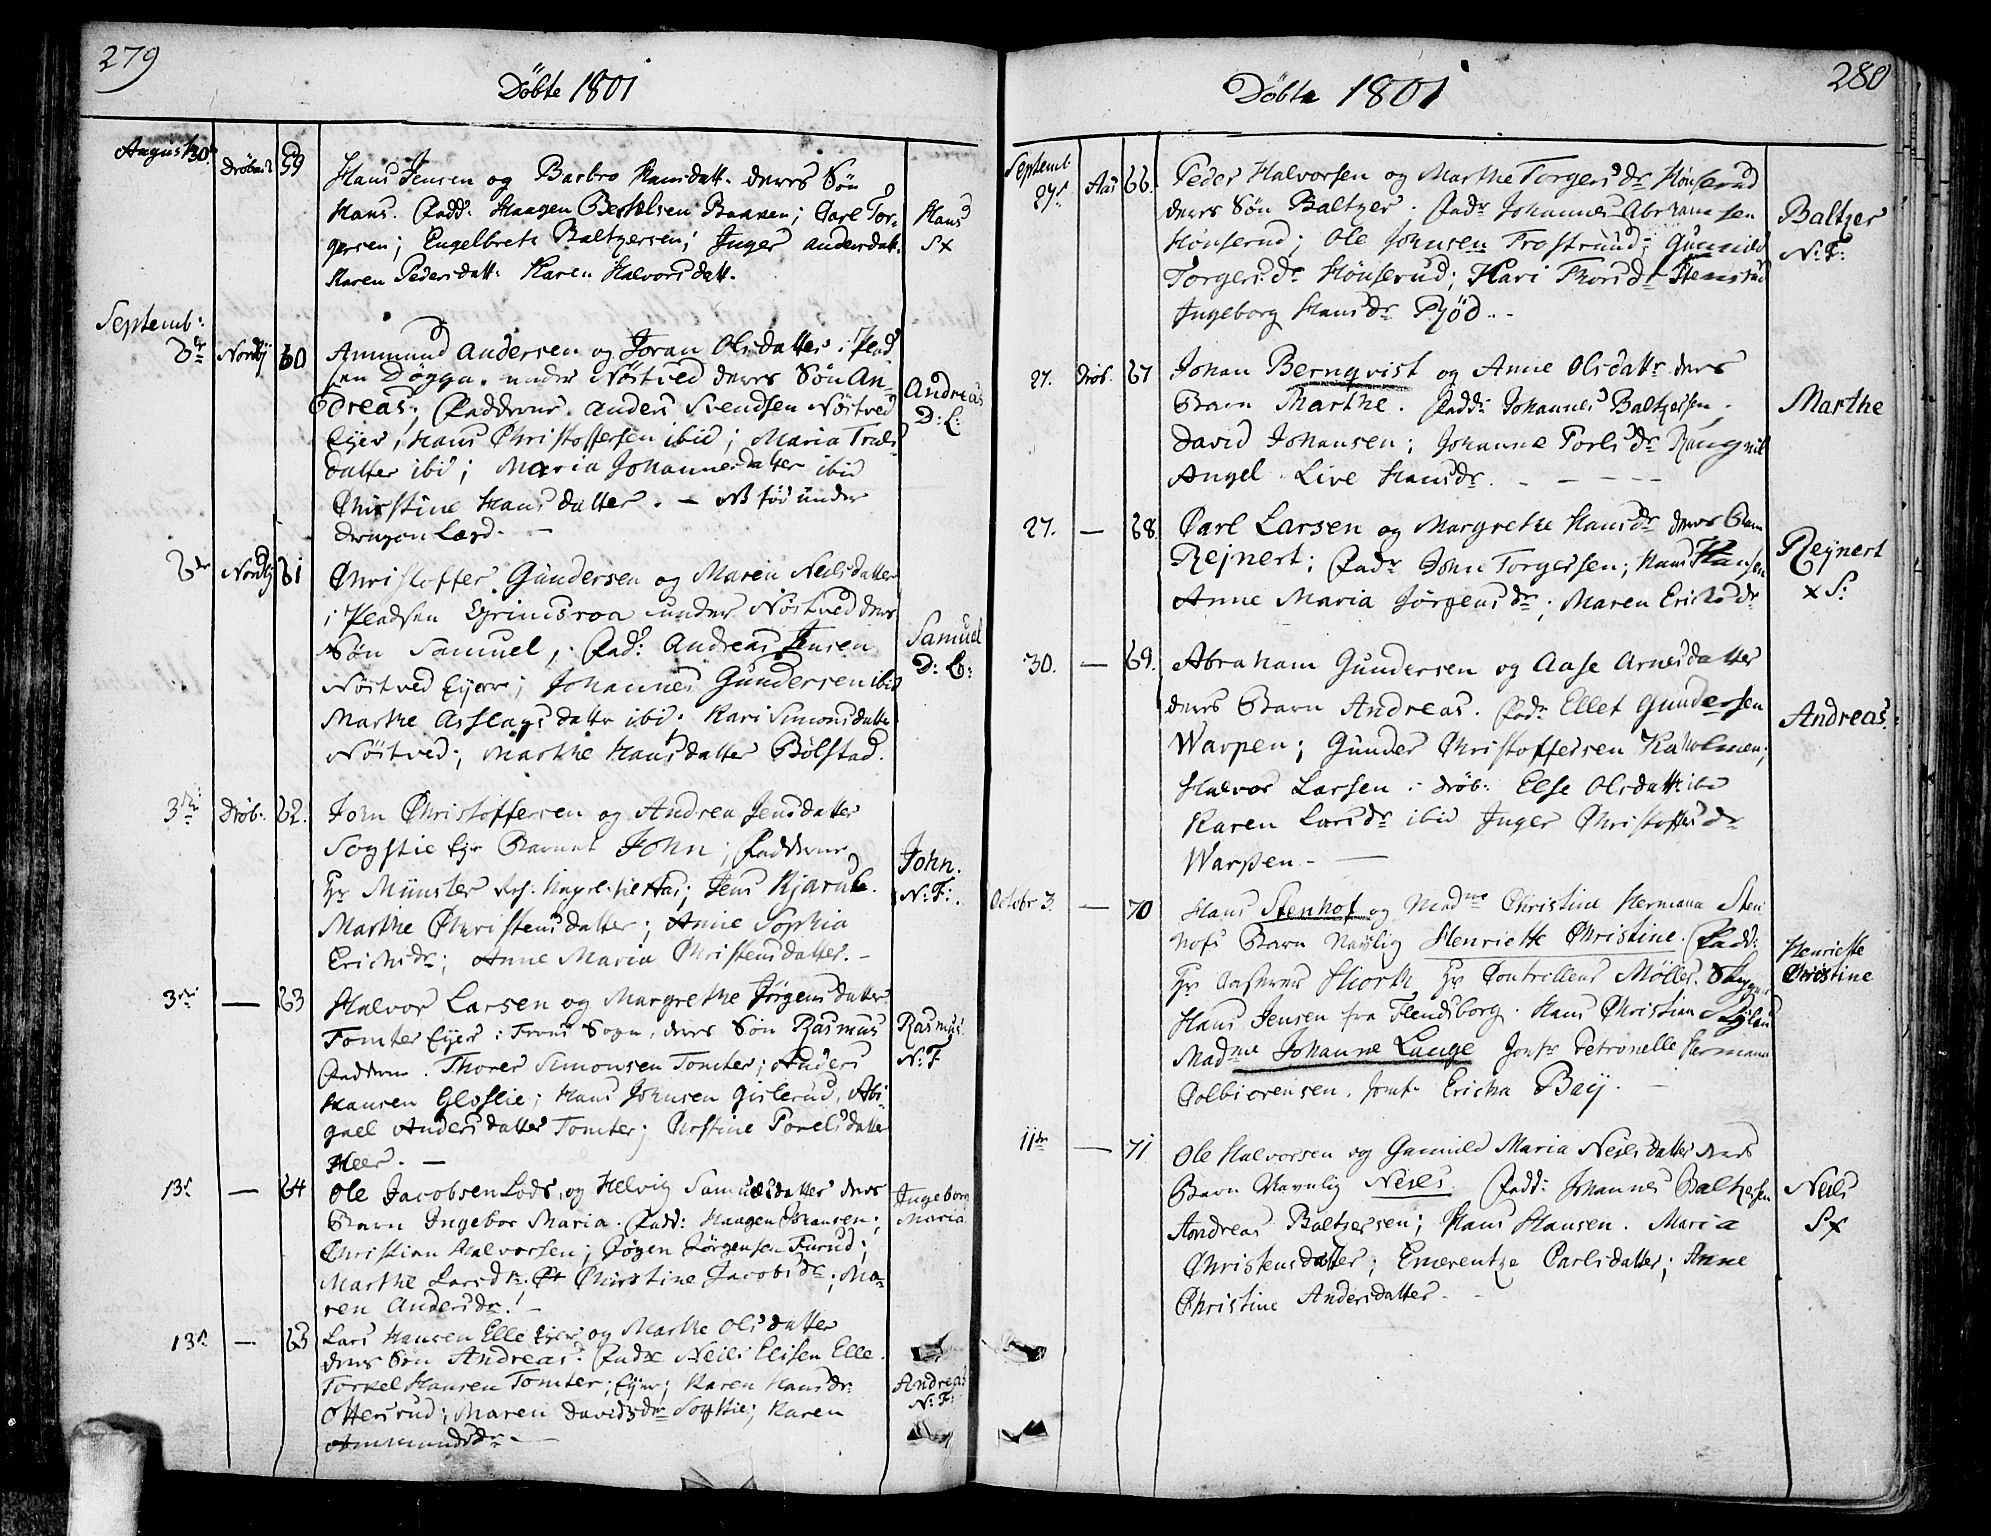 279
Döbte 1801
August 30. Dröbach 59
Hans Jensen og Barbro Hansdatt. deres Sön
Hans. Fadd: Haagen Bertelsen Bakken; Carl Tor-
gersen; Engelbret Baltzersen; Inger Andersdatt.
Karen Pedersdatt: Karen Halvorsdatt.
Hans
S x
Septemb:
Nordbÿ 60
Ammund Andersen og Joran Olsdatter i Plad
sen Dögga under Nöstved deres Sön An-
dreas; Fadderne. Anders Svendsen Nöstved
Eÿer, Hans Christoffersen ibid; Maria Truls
datter ibid; Maria Johannesdatter ibid
Christine Hansdatter. - NB föd under
dragon Lægd. -
Andreas
D: L:
Nordbÿ 61
Christoffer Gundersen og Maren Neilsdatter
i Pladsen under Nöstved deres
Sön Samuel, Fad: Andreas Jensen
Nöstved Eÿer; Johannes Gundersen ibid
Marthe Asslagsdattr ibid; Kari Simonsdatter
Nöstved; Marthe Hansdatter Bölstad.
Samuel
D: L:
3die Dröb: 62.
John Christoffersen og Andrea Jensdatter
Sogstie Ejr Barnet John; Fadderne
Hr Münster; Jens
Marthe Christensdatter; Anne Sophia
Erichsdr; Anne Maria Christensdatter. -
John.
N: F:.
3die — 63
Halvor Larsen og Margrethe Jörgensdatter
Tomter Ejer i Frons Sogn, deres Sön Rasmus
Fadderne. Thorer Simonsen Tomter; Anders
Hansen Gloslie; Hans Johnsen Gislerud, Abi-
gael Andersdatter Tomter; Christine Povelsdatter
Heer. —
Rasmus
N: F
13. — 64
Ole Jacobsen Lods, og Helvig Samuelsdatter deres
Barn Ingebor Maria. Fadd: Haagen Johansen;
Christian Halvorsen; Jögen Jörgensen Furud;
Marthe Larsdr; Christine Jacobsdr; Ma-
ren Andersdr. -
Ingeborg
Maria
13. — 65
Lars Hansen Elle Ejer og Marthe Olsdatter
deres Sön Andreas. Fadr Neils Elisen Elle
Torkel Hansen Tomter; Ejer; Karen Hansdr
Ottersrud; Maren Davidsdr Sogstie; Karen
Ammundsdr. —
Andreas
N: F:
280
Döbte 1801
Septemb
27. Aas 66.
Peder Halvorsen og Marthe Torgersdr Hönserud
deres Sön Baltzer. Fadr Johannes Abrahamsen
Hönserud; Ole Johnsen Trostrund; Gunnild
Torgersdr Hönserud; Kari Thorsdr
Ingeborg Hansdr
Baltzer
N: F:
27. Dröb. 67
Johan Bernqvist og Anne Olsdattr deres
Barn Marthe. Fadd: Johannes Baltzersen,
David Johansen; Johanne
Angel. Live Hansdr. - - - -
Marthe
27. — 68.
Carl Larsen og Margrethe Hansdr deres Barn
Rejnert; Fadr John Torgersen; Hans Hansen
Anne Maria Jörgensdr; Maren Erichsdr
Rejnert
x S:
30. — 69.
Abraham Gundersen og Aase Arnesdatter
deres Barn Andreas. Fadr Ellet Gundersen
Warpen; Gunder Christoffersen Kaholmen;
Halvor Larsen i Dröb: Else Olsdatt: ibid
Karen Larsdr ibid Inger Christoffersdr
Warpen. —
Andreas.
Octobr 3. — 70
Hans Stenhof og Madme Christine Hermana Sten
hofs Barn Navnlig Henriette Christine. Fadd:
Hr Hiorth Hr Controlleur Möller.
Hans Jensen fra Flendsborg. Hans Christian
Madme Johanne Lange Jomfr Petronelle Hermana
Colbiörensen. Jomfr Ericha Beÿ. —
Henriette
Christine
11te — 71
Ole Halvorsen og Gunnild Maria Neilsdatter deres
Barn Navnlig Neils. Fadd: Johannes Baltzersen
Andreas Baltzersen; Hans Hansen. Maria
Christensdatter; Emerentze Carlsdatter; Anne
Christine Andersdatter. -
Neils
S x